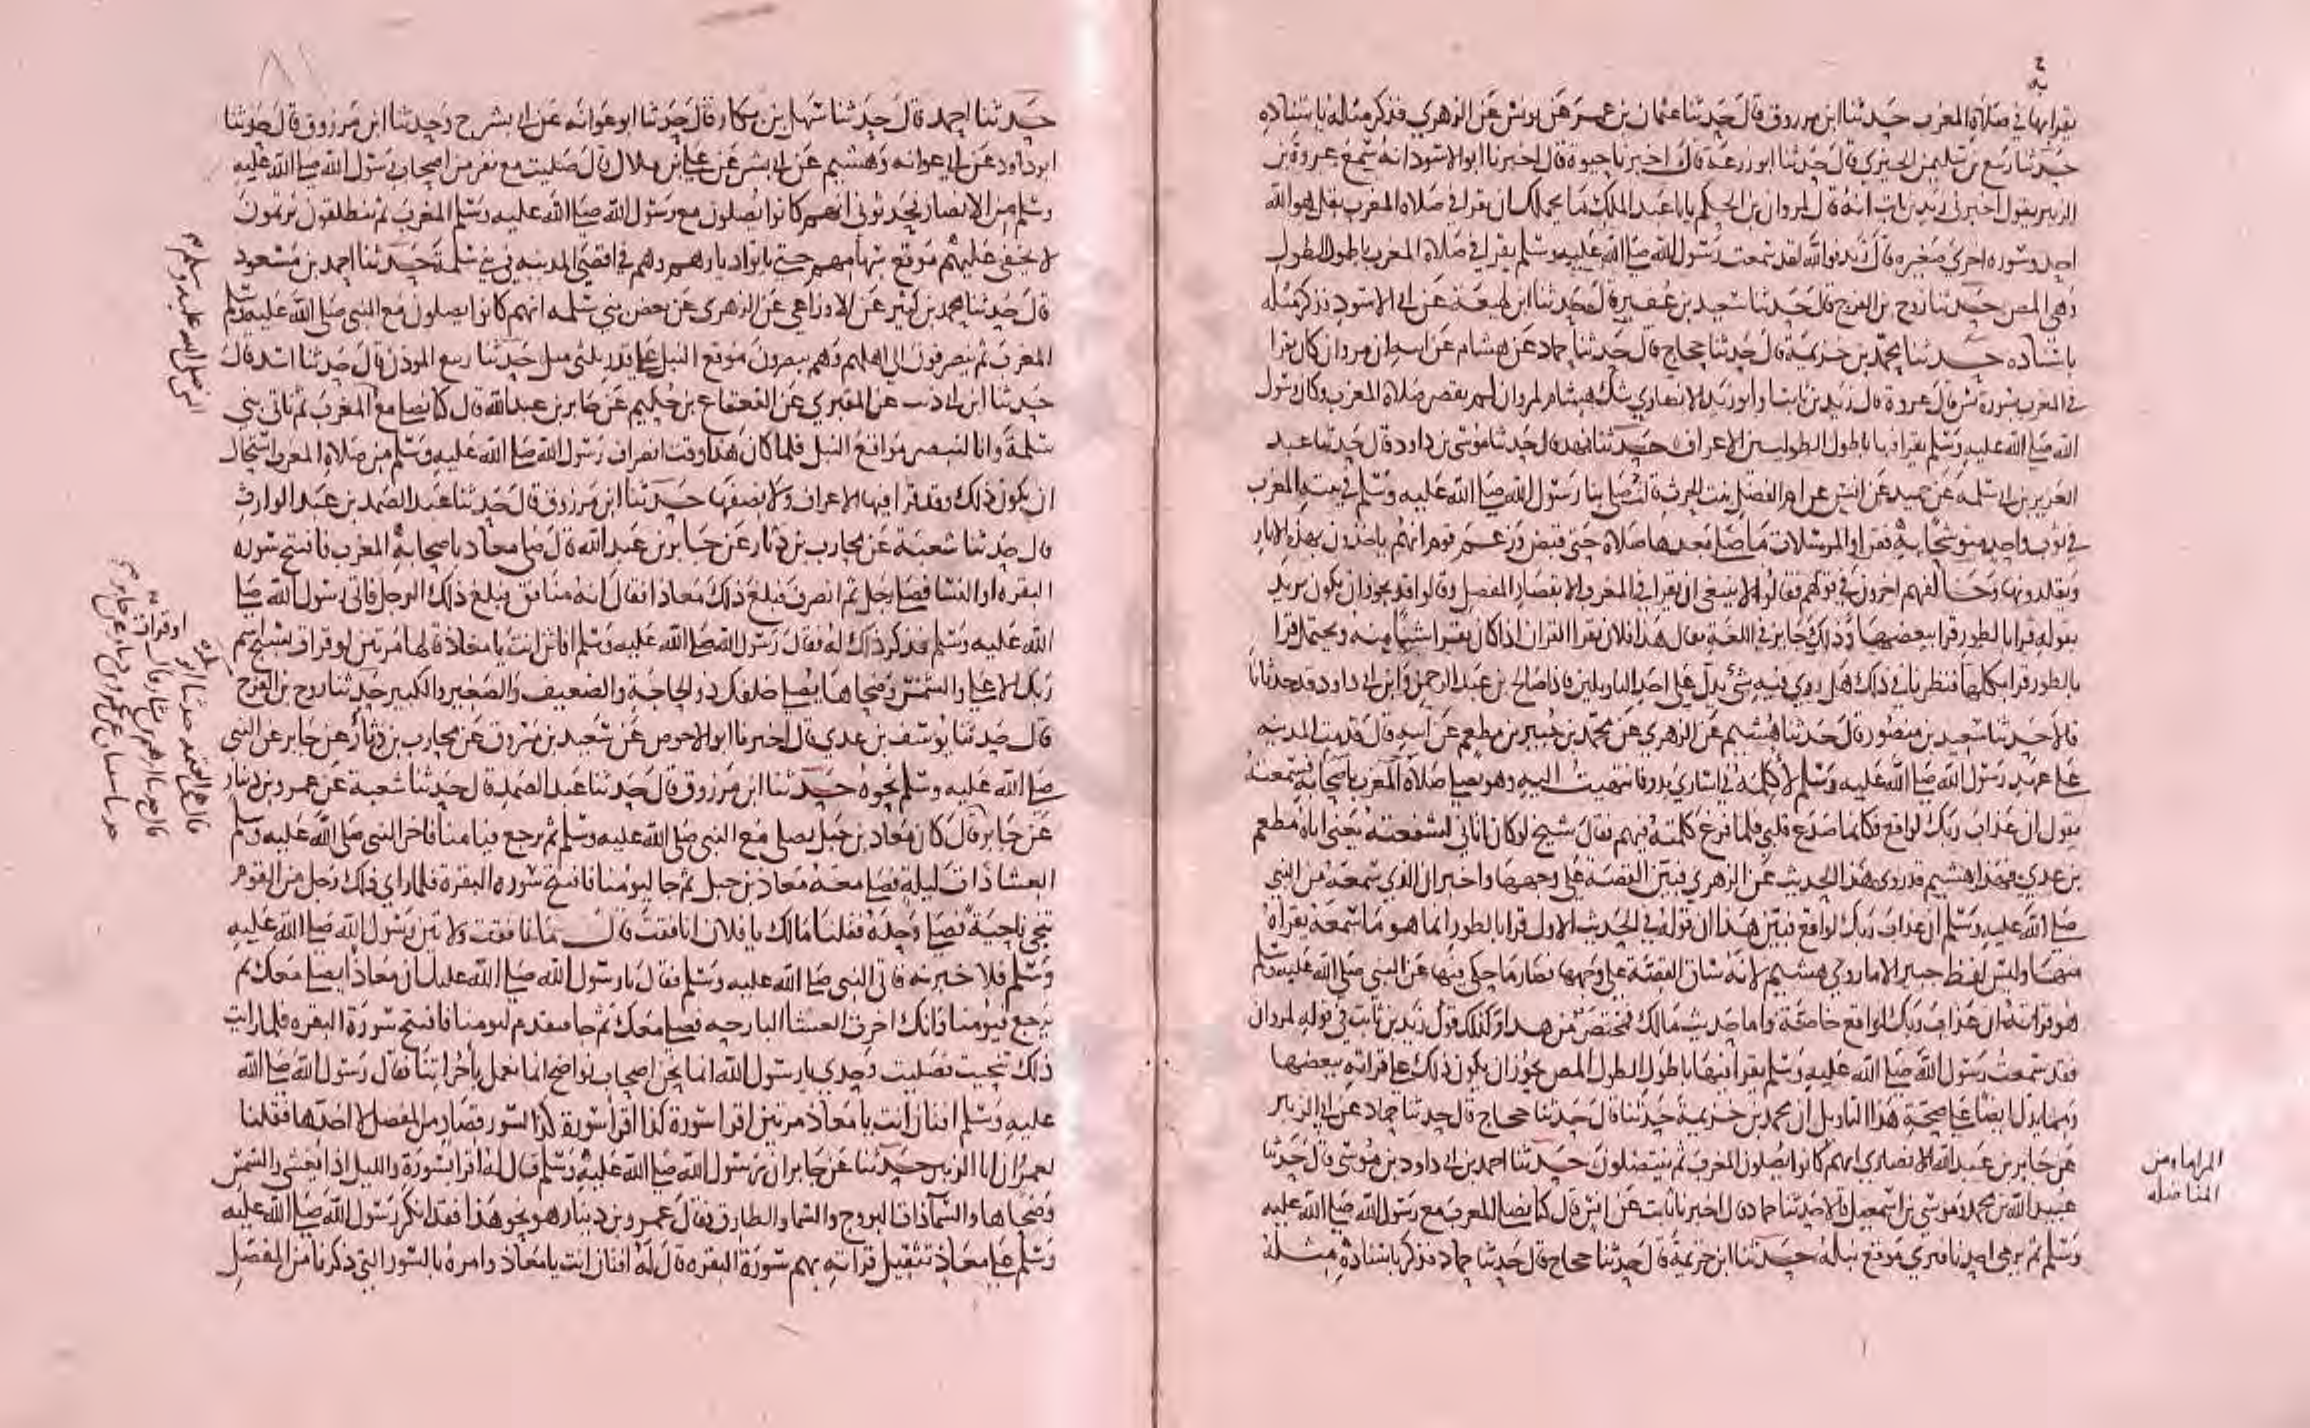 يقرا بها في صلاة المغرب حدثنا ابن مرزوق قال حدثنا عثمان بن عمر عن يونس عن الزهري فذكر مثله باسناده
حدثنا ربيع بن سليمن الجيزي قال حدثنا ابو زرعة قال اخبرنا حيوة قال اخبرنا ابو الاسود انه سمع عروة بن
الزبير يقول اخبرني زيد بن ثابت انه قال لمروان بن الحكم يا با عبد الملك ما يحملك ان تقرا في صلاة المغرب بقل هو الله
احد وسوره اخري صغيره قال زيد فوالله لقد سمعت رسول الله صلى الله عليه وسلم يقرا في صلاة المغرب باطول الطول
وهي المص حدثنا روح بن الفرج قال حدثنا سعيد بن عفير قال حدثنا ابن لهيعة عن ابي الاسود فذكر مثله
باسناده حدثنا محمد بن خزيمة قال حدثنا حجاج قال حدثنا حماد عن هشام عن ابيه ان مروان كان يقرا
في المغرب بسورة يس قال عروة قال زيد بن ثابت او ابو زيد الانصاري شك هشام لمروان لم تقصر صلاة المغرب وكان رسول
الله صلى الله عليه وسلم يقرا فيها باطول الطوليين الاعراف حدثنا فهد قال حدثنا موسى بن داود قال حدثنا عبد
العزيز بن ابي سلمة عن حميد عن انس عن ام الفضل بنت الحرث قالت صلى بنا رسول الله صلى الله عليه وسلم في بيته المغرب
في ثوب واحد متوشحا به فقرا والمرسلات ما صلى بعدها صلاة حتى قبض فزعم قوم انهم ياخذون بهذه الاثار
ويقلدونها وخالفهم اخرون في قولهم فقالوا لا ينبغي ان يقرا في المغرب الا بقصار المفصل وقالوا قد يجوز ان يكون يريد
بقوله قرا بالطور قرا ببعضها وذلك جايز في اللغة يقال هذا فلان يقرا القران اذا كان يقرا شيا منه ويحتمل قرا
بالطور قرا بكلها فنظرنا في ذلك هل روي فيه شئ يدل على احد التاويلين فاذا صالح بن عبد الرحمن وابن ابي داود قد حدثانا
قالا حدثنا سعيد بن منصور قال حدثنا هشيم عن الزهري عن محمد بن جبير بن مطعم عن ابيه قال قدمت المدينه
على عهد رسول الله صلى الله عليه وسلم لاكلمه في اسارى بدر فانتهيت اليه وهو يصلي صلاة المغرب باصحابه فسمعته
يقول ان عذاب ربك لواقع فكانما صدع قلبي فلما فرغ كلمته فيهم فقال شيخ لو كان اتاني لشفعته يعني اباه مطعم
بن عدي فهذا هشيم قد روى هذا الحديث عن الزهري فبين القصة على وجهها واخبر ان الذي سمعه من النبي
صلى الله عليه وسلم ان عذاب ربك لواقع فبين هذا ان قوله في الحديث الاول قرا بالطور انما هو ما سمعه يقراه
منها وليس لفظ جبير الا ما روى هشيم لانه ساق القصة على وجهها فصار ما حكى فيها عن النبي صلى الله عليه وسلم
هو قراته ان عذاب ربك لواقع خاصة واما حديث مالك فمختصر من هذا وكذلك قول زيد بن ثابت في قوله لمروان
فقد سمعت رسول الله صلى الله عليه وسلم يقرا فيها باطول الطول المص يجوز ان يكون ذلك على قراته ببعضها
ومما يدل ايضا على صحة هذا التاويل ان محمد بن خزيمة حدثنا قال حدثنا حجاج قال حدثنا حماد عن ابي الزبير
عن جابر بن عبد الله الانصاري انهم كانوا يصلون المغرب ثم ينتضلون حدثنا احمد بن ابي داود بن موسى قال حدثنا
عبيد الله بن محمد وموسى بن اسمعيل قالا حدثنا حماد قال اخبرنا ثابت عن انس قال كنا نصلي المغرب مع رسول الله صلى الله عليه
وسلم ثم يرمي احدنا فيرى موقع نبله حدثنا ابن خزيمة قال حدثنا حجاج قال حدثنا حماد فذكر باسناده مثله
المناضله
حدثنا احمد قال حدثنا سهل بن بكار قال حدثنا ابو عوانه عن ابي بشر ح وحدثنا ابن مرزوق قال حدثنا
ابو داود عن ابي عوانه وهشيم عن ابي بشر عن علي بن بلال قال صليت مع نفر من اصحاب رسول الله صلى الله عليه
وسلم من الانصار فحدثوني انهم كانوا يصلون مع رسول الله صلى الله عليه وسلم المغرب ثم ينطلقون يرتمون
لا يخفى عليهم موقع سهامهم حتى ياتوا ديارهم وهم في اقصى المدينه في بني سلمة حدثنا احمد بن مسعود
قال حدثنا محمد بن كثير عن الاوزاعي عن الزهري عن بعض بني سلمه انهم كانوا يصلون مع النبي صلى الله عليه وسلم
المغرب ثم ينصرفون الى اهليهم وهم يبصرون موقع النبل على قدر ثلثي ميل حدثنا ربيع الموذن قال حدثنا اسد قال
حدثنا ابن ابي ذيب عن المقبري عن القعقاع بن حكيم عن جابر بن عبد الله قال كنا نصلي مع المغرب ثم ناتي بني
سلمة وانا لنبصر مواقع النبل فلما كان هذا وقت انصراف رسول الله صلى الله عليه وسلم من صلاة المغرب استحال
ان يكون ذلك وقد قرا فيها الاعراف ولا نصفها حدثنا ابن مرزوق قال حدثنا عبد الصمد بن عبد الوارث
قال حدثنا شعبة عن محارب بن دثار عن جابر بن عبد الله قال صلى معاذ باصحابه المغرب فافتتح سوره
البقره او النسا فصلى رجل ثم انصرف فبلغ ذلك معاذا فقال انه منافق فبلغ ذلك الرجل فاتى رسول الله صلى
الله عليه وسلم فذكر ذلك له فقال رسول الله صلى الله عليه وسلم افاتن انت يا معاذ قالها مرتين لو قرات بسبح اسم
ربك الاعلى والشمس وضحاها يصلي خلفك ذو الحاجة والضعيف والصغير والكبير حدثنا روح بن الفرج
قال حدثنا يوسف بن عدي قال اخبرنا ابو الاحوص عن سعيد بن مسروق عن محارب بن دثار عن جابر عن النبي
صلى الله عليه وسلم نحوه حدثنا ابن مرزوق قال حدثنا عبد الصمد قال حدثنا شعبة عن عمرو بن دينار
عن جابر قال كان معاذ بن جبل يصلي مع النبي صلى الله عليه وسلم ثم يرجع فيامنا فاخر النبي صلى الله عليه وسلم
العشا ذات ليلة فصلى معه معاذ بن جبل ثم جا ليومنا فافتتح سوره البقرة فلما راى ذلك رجل من القوم
تنحى ناحية فصلى وحده فقلنا مالك يا فلان انافقت قال ما نافقت ولاتين رسول الله صلى الله عليه
وسلم فلاخبرنه فاتى النبي صلى الله عليه وسلم فقال يا رسول الله صلى الله عليك ان معاذا يصلي معك ثم
يرجع فيومنا وانك اخرت العشا البارحه فصلى معك ثم جا فتقدم ليومنا فافتتح سورة البقره فلما رايت
ذلك تنحيت فصليت وحدي يا رسول الله انما نحن اصحاب نواضح انما نعمل باجرائنا فقال رسول الله صلى الله
عليه وسلم افتان انت يا معاذ مرتين اقرا سورة كذا اقرا سورة كذا لسور قصار من المفصل لا احدها فقلنا
لعمرو ان ابا الزبير حدثنا عن جابر ان رسول الله صلى الله عليه وسلم قال له اقرا بسورة والليل اذا يغشى والشمس
وضحاها والسما ذات البروج والسما والطارق فقال عمرو بن دينار هو نحو هذا فقد انكر رسول الله صلى الله عليه
وسلم على معاذ تثقيل قراته بهم سورة البقره قال له افتان انت يا معاذ وامره بالسور التي ذكرنا من المفصل
النبي صلى الله عليه وسلم